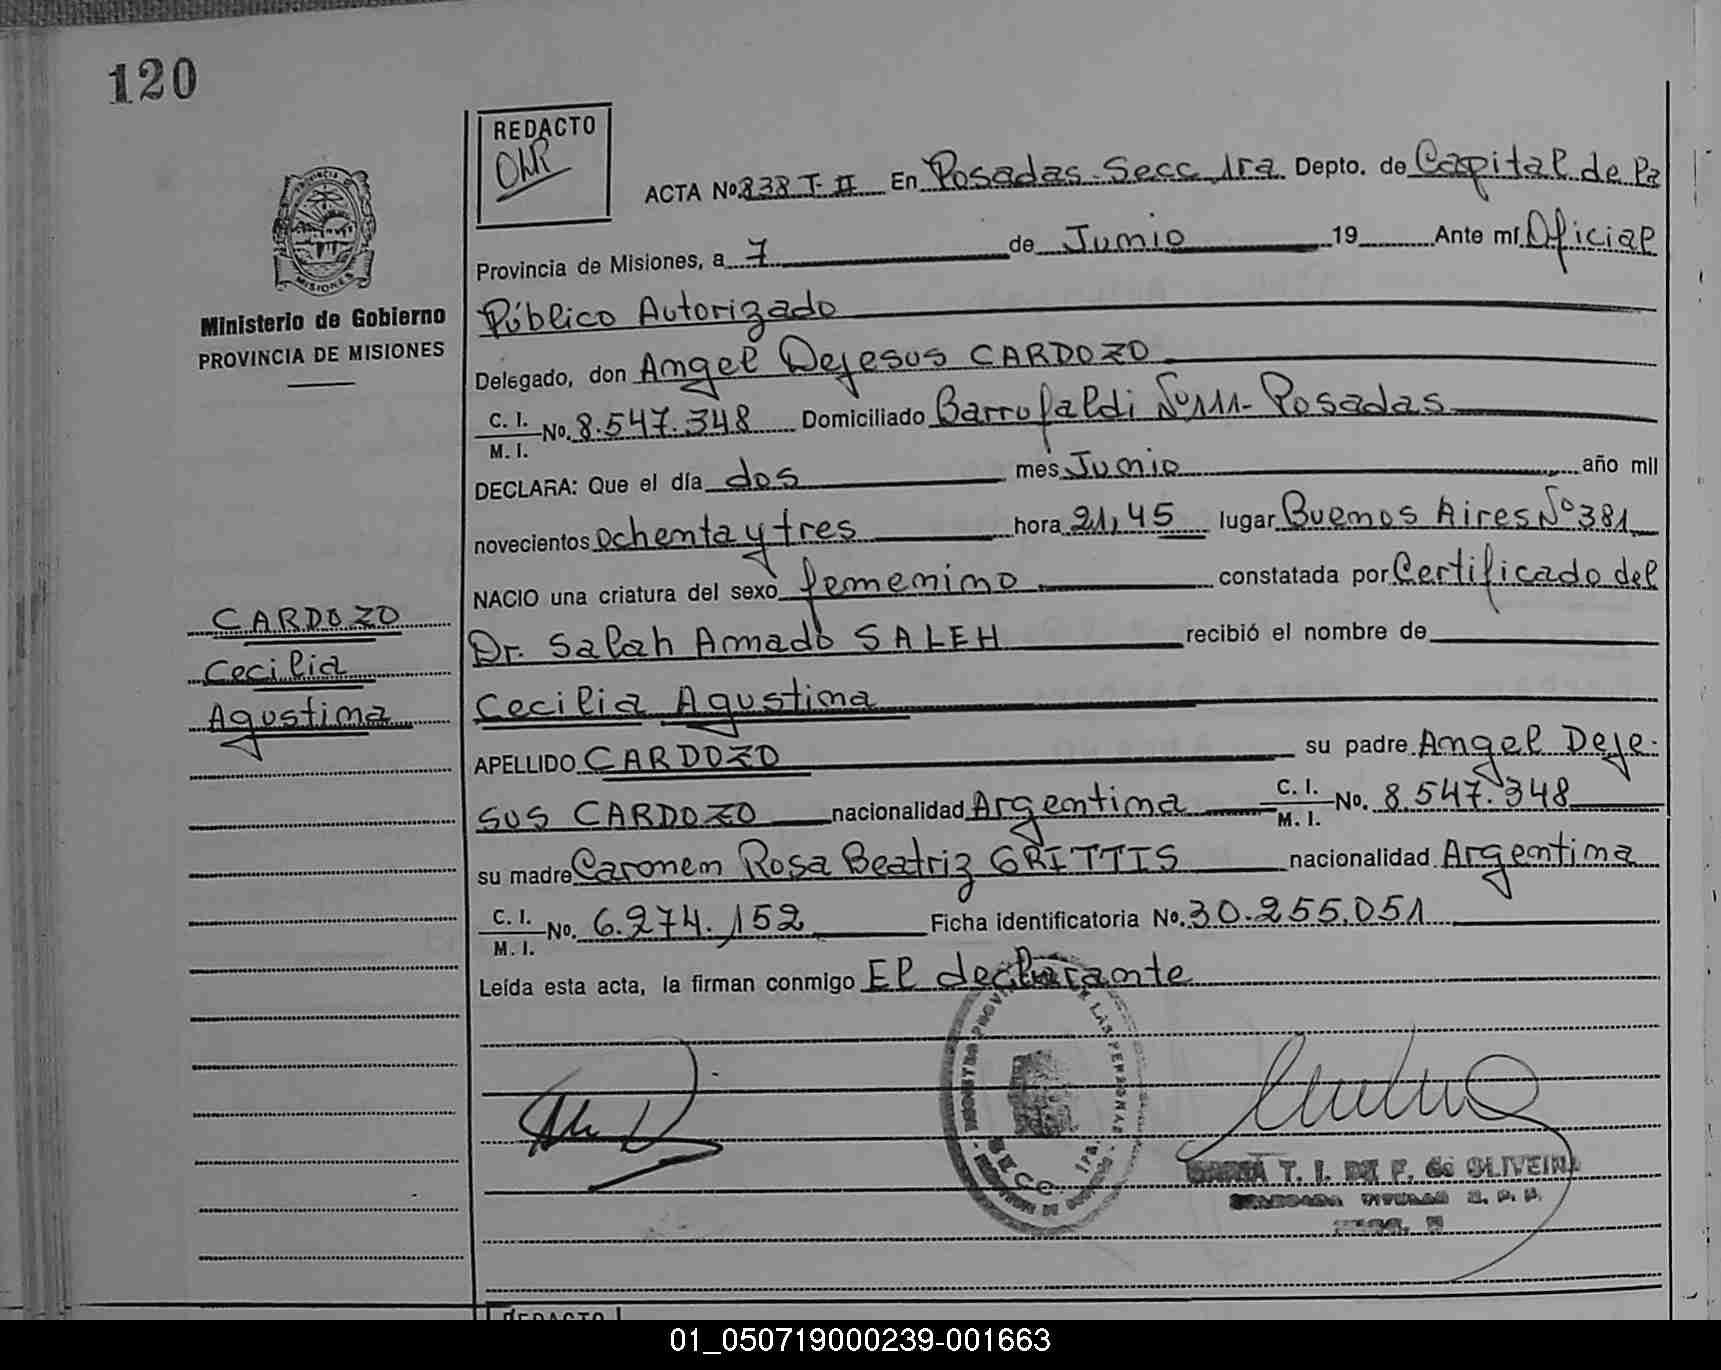 120
REDACTO
OLR
PROVINCIA DE
MISIONES
ACTA No 838 T-II En Posadas-Secc 1ra Depto. de Capital de la
Provincia de Misiones, a 7 de Junio 19 Ante mí Oficial
Ministerio de Gobierno
PROVINCIA DE MISIONES
Público Autorizado
Delegado, don Angel Dejesus CARDOZO
C. I. No. 8.547.348 Domiciliado Barrufaldi Nº111- Posadas
M. I.
DECLARA: Que el día dos mes Junio año mil
novecientos ochenta y tres hora 21,45 lugar Buenos Aires Nº 381
NACIO una criatura del sexo femenino constatada por Certificado del
CARDOZO
Cecilia
Agustina
Dr. Salah Amado SALEH recibió el nombre de
Cecilia Agustina
APELLIDO CARDOZO su padre Angel Deje-
sus CARDOZO nacionalidad Argentina C. I. No. 8.547.348
M. I.
su madre Carmen Rosa Beatriz GRITTIS nacionalidad Argentina
C. I. No. 6.274.152 Ficha identificatoria No. 30.255.051
M. I.
Leída esta acta, la firman conmigo El declarante
REGISTRO PROV DE LAS PERSONAS
SECC. 1ra.
MARIA T. I. DE F. de OLIVEIRA
REDACTO
01_050719000239-001663